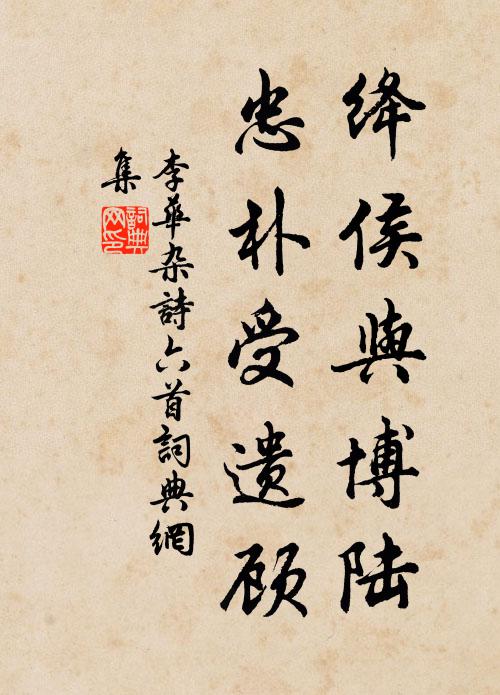 绛侯與博陆
忠朴受遗顾
李華杂詩六首詞典網
集
詞典网印